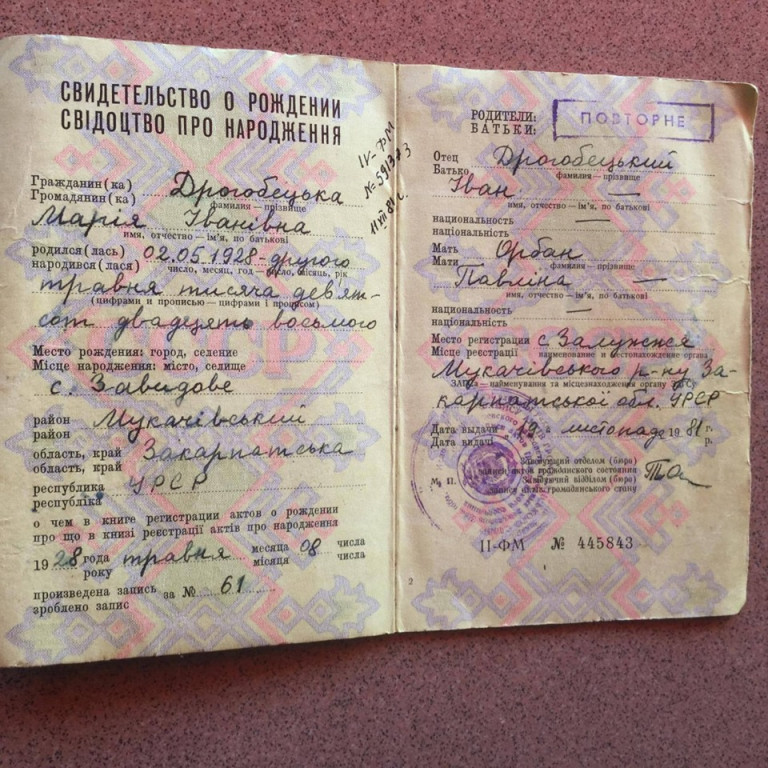 СВИДЕТЕЛЬСТВО О РОЖДЕНИИ
СВІДОЦТВО ПРО НАРОДЖЕННЯ
IV-ФМ
№ 591373
Гражданин(ка) Дрогобецька
Громадянин(ка) фамилия — прізвище
Марія Іванівна
имя, отчество — ім'я, по батькові
родился(лась) 02.05.1928 - другого
народився(лася) число, месяц, год — число, місяць, рік
травня тисяча дев'ят-
(цифрами и прописью — цифрами і прописом)
сот двадцять восьмого
Место рождения: город, селение
Місце народження: місто, селище
с. Завидове
район Мукачівський
район
область, край Закарпатська
область, край
республика УРСР
республіка
о чем в книге регистрации актов о рождении
про що в книзі реєстрації актів про народження
1928 года травня месяца 08 числа
року місяця числа
произведена запись за № 61
зроблено запис
РОДИТЕЛИ:
БАТЬКИ:
ПОВТОРНЕ
Отец Дрогобецький
Батько фамилия — прізвище
Іван —
имя, отчество — ім'я, по батькові
национальность —
національність
Мать Орбан
Мати фамилия — прізвище
Павліна —
имя, отчество — ім'я, по батькові
национальность —
національність
Место регистрации с. Залужжя
Місце реєстрації наименование и местонахождение органа
Мукачівського р-ну За-
ЗАГСа — найменування та місцезнаходження органу
карпатської обл. УРСР
Дата выдачи 12 листопада 1981 г.
Дата видачі р.
Заведующий отделом (бюро)
записи актов гражданского состояния
Завідуючий відділом (бюро)
запису актів громадянського стану
М. П.
II-ФМ № 445843
2